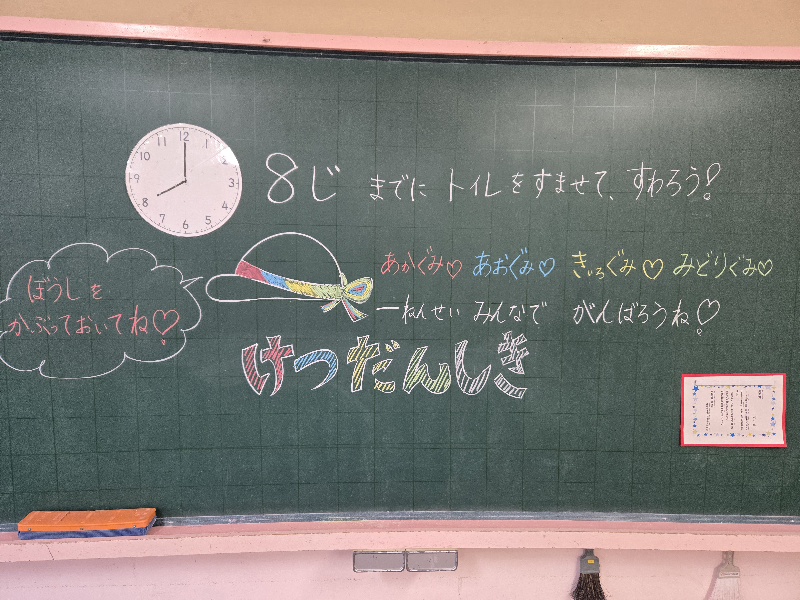 8じ までに トイレをすませて、すわろう!
ぼうしを
かぶっておいてね♡
あかぐみ♡ あおぐみ♡ きいろぐみ♡ みどりぐみ♡
一ねんせい みんなで がんばろうね♡
けつだんしき
12 1 2 3 4 5 6 7 8 9 10 11